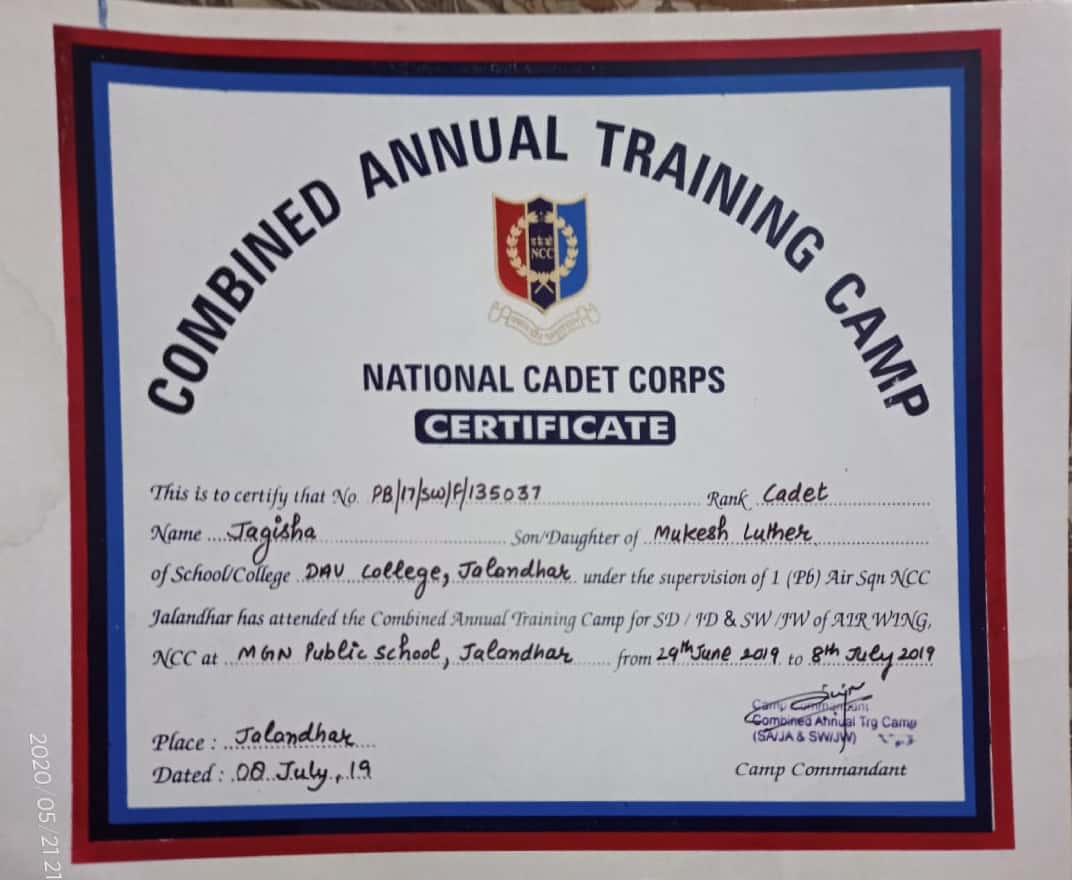 COMBINED ANNUAL TRAINING CAMP
NCC
NATIONAL CADET CORPS
CERTIFICATE
This is to certify that No. PB/17/SW/F/135037 Rank Cadet
Name Jagisha Son/Daughter of Mukesh Luther
of School/College DAV College, Jalandhar under the supervision of 1 (Pb) Air Sqn NCC
Jalandhar has attended the Combined Annual Training Camp for SD / JD & SW /JW of AIR WING,
NCC at MGN Public School, Jalandhar from 29th June 2019 to 8th July 2019
Camp Commandant
Combined Annual Trg Camp
(SA/JA & SW/JW)
Place : Jalandhar
Dated : 08 July, 19
Camp Commandant
2020/05/21 21